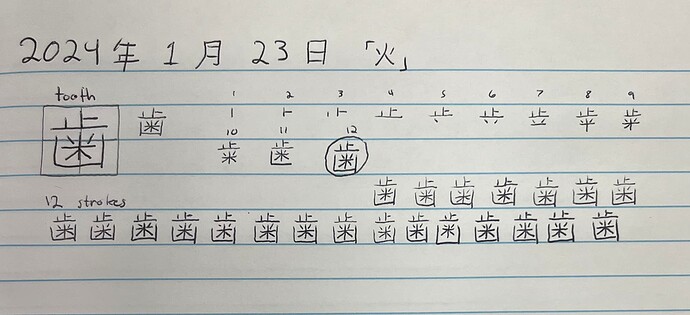 2024年 1月 23日 「火」
tooth
1 2 3 4 5 6 7 8 9
歯 歯 止
10 11 12
歯
歯 歯 歯 歯 歯 歯 歯
12 strokes
歯 歯 歯 歯 歯 歯 歯 歯 歯 歯 歯 歯 歯 歯 歯